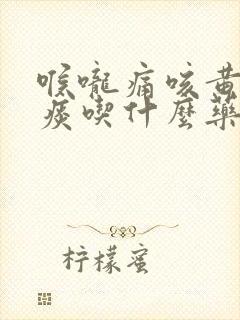 喉嚨痛咳黃
痰喫什麼藥
柠檬蜜